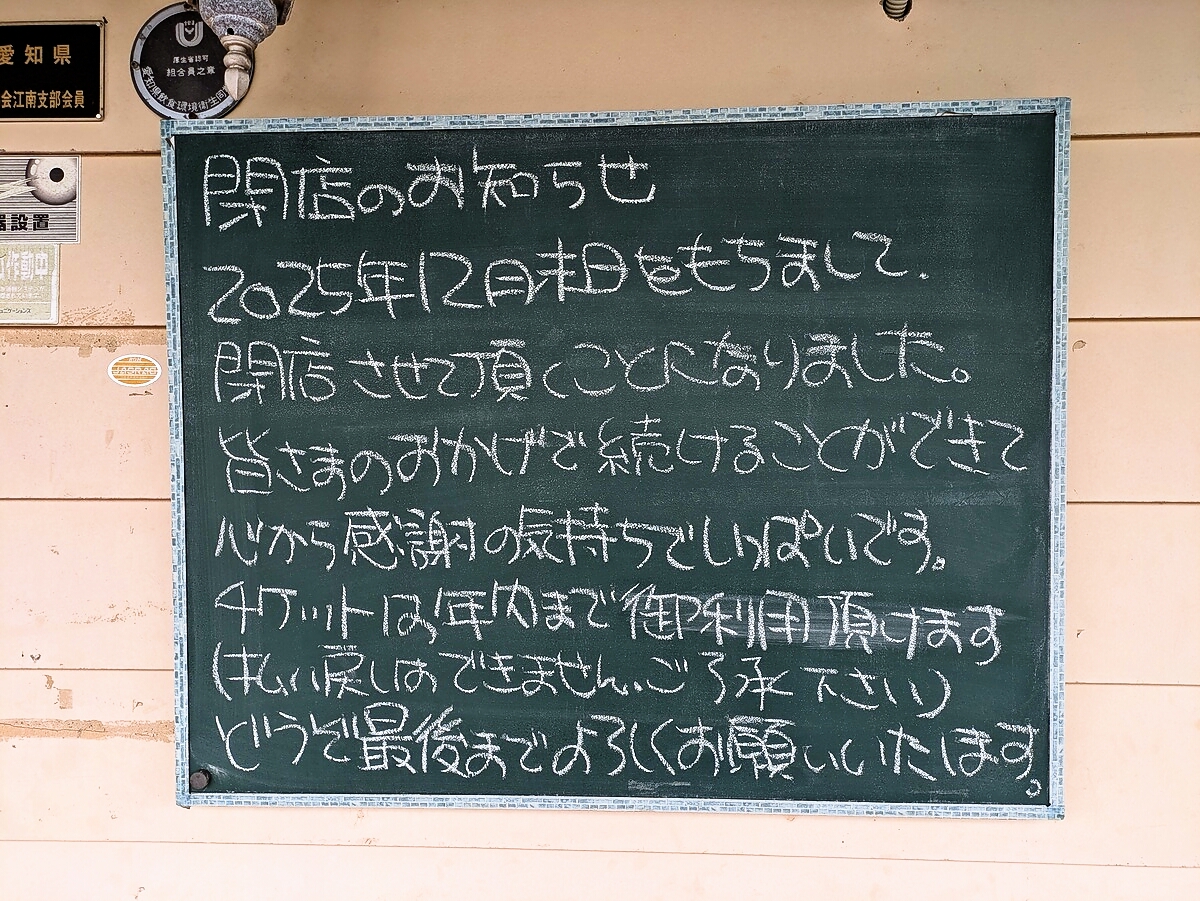 愛知県
会江南支部会員
厚生省認可
組合員之章
愛知県飲食環境衛生同
器設置
作動中
JASRAC
閉店のお知らせ
2025年12月末日をもちまして、
閉店させて頂くことになりました。
皆さまのおかげで続けることができて
心から感謝の気持ちでいっぱいです。
チケットは年内まで御利用頂けます
(払い戻しはできません、ご了承下さい)
どうぞ最後までよろしくお願いいたします。